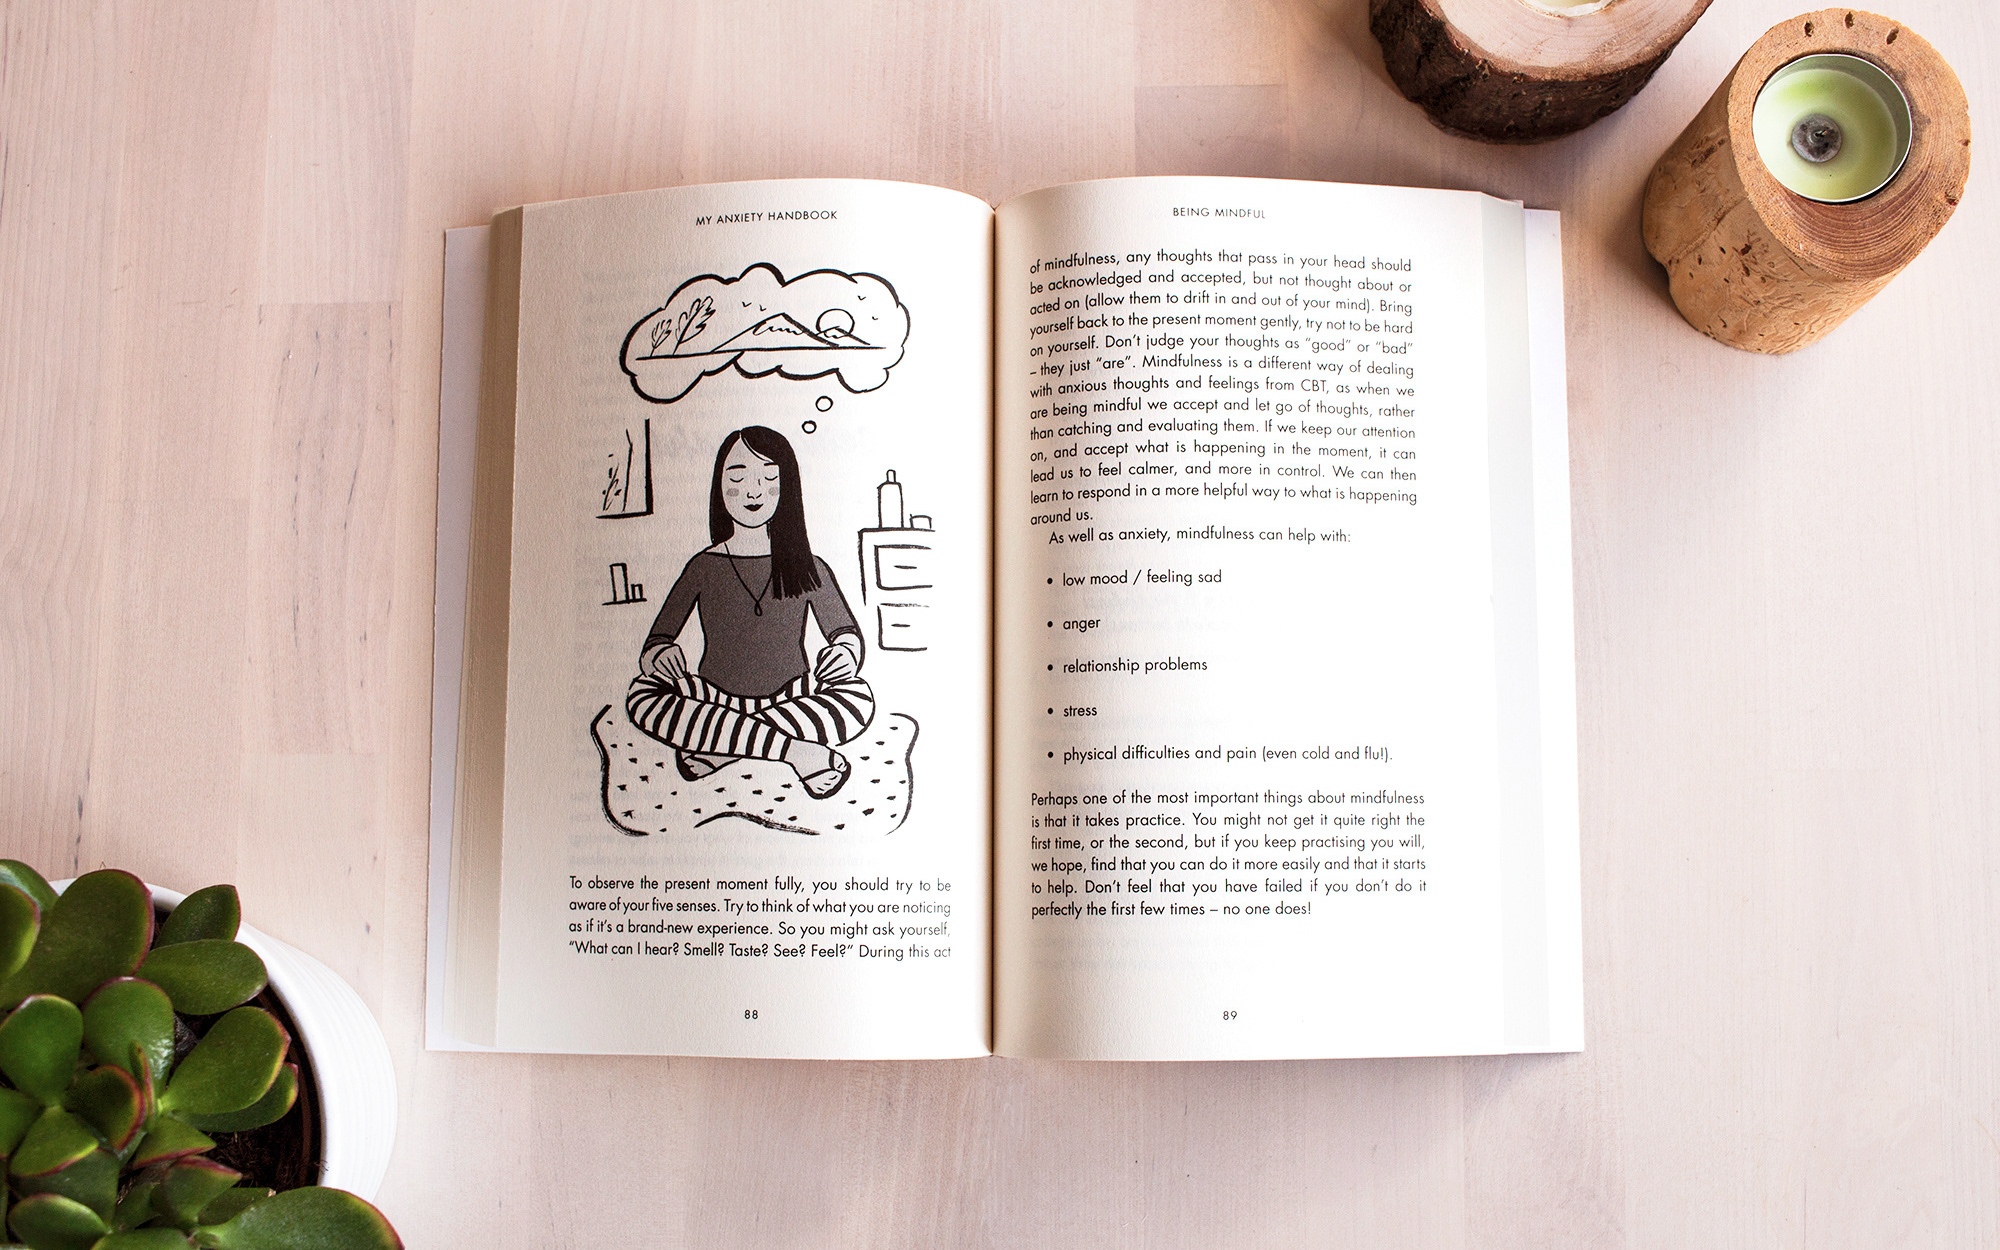 MY ANXIETY HANDBOOK
To observe the present moment fully, you should try to be
aware of your five senses. Try to think of what you are noticing
as if it's a brand-new experience. So you might ask yourself,
"What can I hear? Smell? Taste? See? Feel?" During this act
88
BEING MINDFUL
of mindfulness, any thoughts that pass in your head should
be acknowledged and accepted, but not thought about or
acted on (allow them to drift in and out of your mind). Bring
yourself back to the present moment gently, try not to be hard
on yourself. Don't judge your thoughts as "good" or "bad"
– they just "are". Mindfulness is a different way of dealing
with anxious thoughts and feelings from CBT, as when we
are being mindful we accept and let go of thoughts, rather
than catching and evaluating them. If we keep our attention
on, and accept what is happening in the moment, it can
lead us to feel calmer, and more in control. We can then
learn to respond in a more helpful way to what is happening
around us.
As well as anxiety, mindfulness can help with:
• low mood / feeling sad
• anger
• relationship problems
• stress
• physical difficulties and pain (even cold and flu!).
Perhaps one of the most important things about mindfulness
is that it takes practice. You might not get it quite right the
first time, or the second, but if you keep practising you will,
we hope, find that you can do it more easily and that it starts
to help. Don't feel that you have failed if you don't do it
perfectly the first few times – no one does!
89